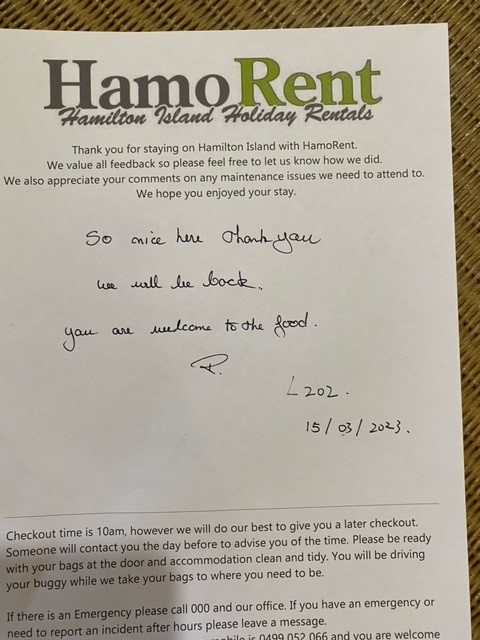 HamoRent
Hamilton Island Holiday Rentals
Thank you for staying on Hamilton Island with HamoRent.
We value all feedback so please feel free to let us know how we did.
We also appreciate your comments on any maintenance issues we need to attend to.
We hope you enjoyed your stay.
So nice here thank you
we will be back.
you are welcome to the food.
P.
L202.
15/03/2023.
Checkout time is 10am, however we will do our best to give you a later checkout.
Someone will contact you the day before to advise you of the time. Please be ready
with your bags at the door and accommodation clean and tidy. You will be driving
your buggy while we take your bags to where you need to be.
If there is an Emergency please call 000 and our office. If you have an emergency or
need to report an incident after hours please leave a message.
mobile is 0499 052 066 and you are welcome